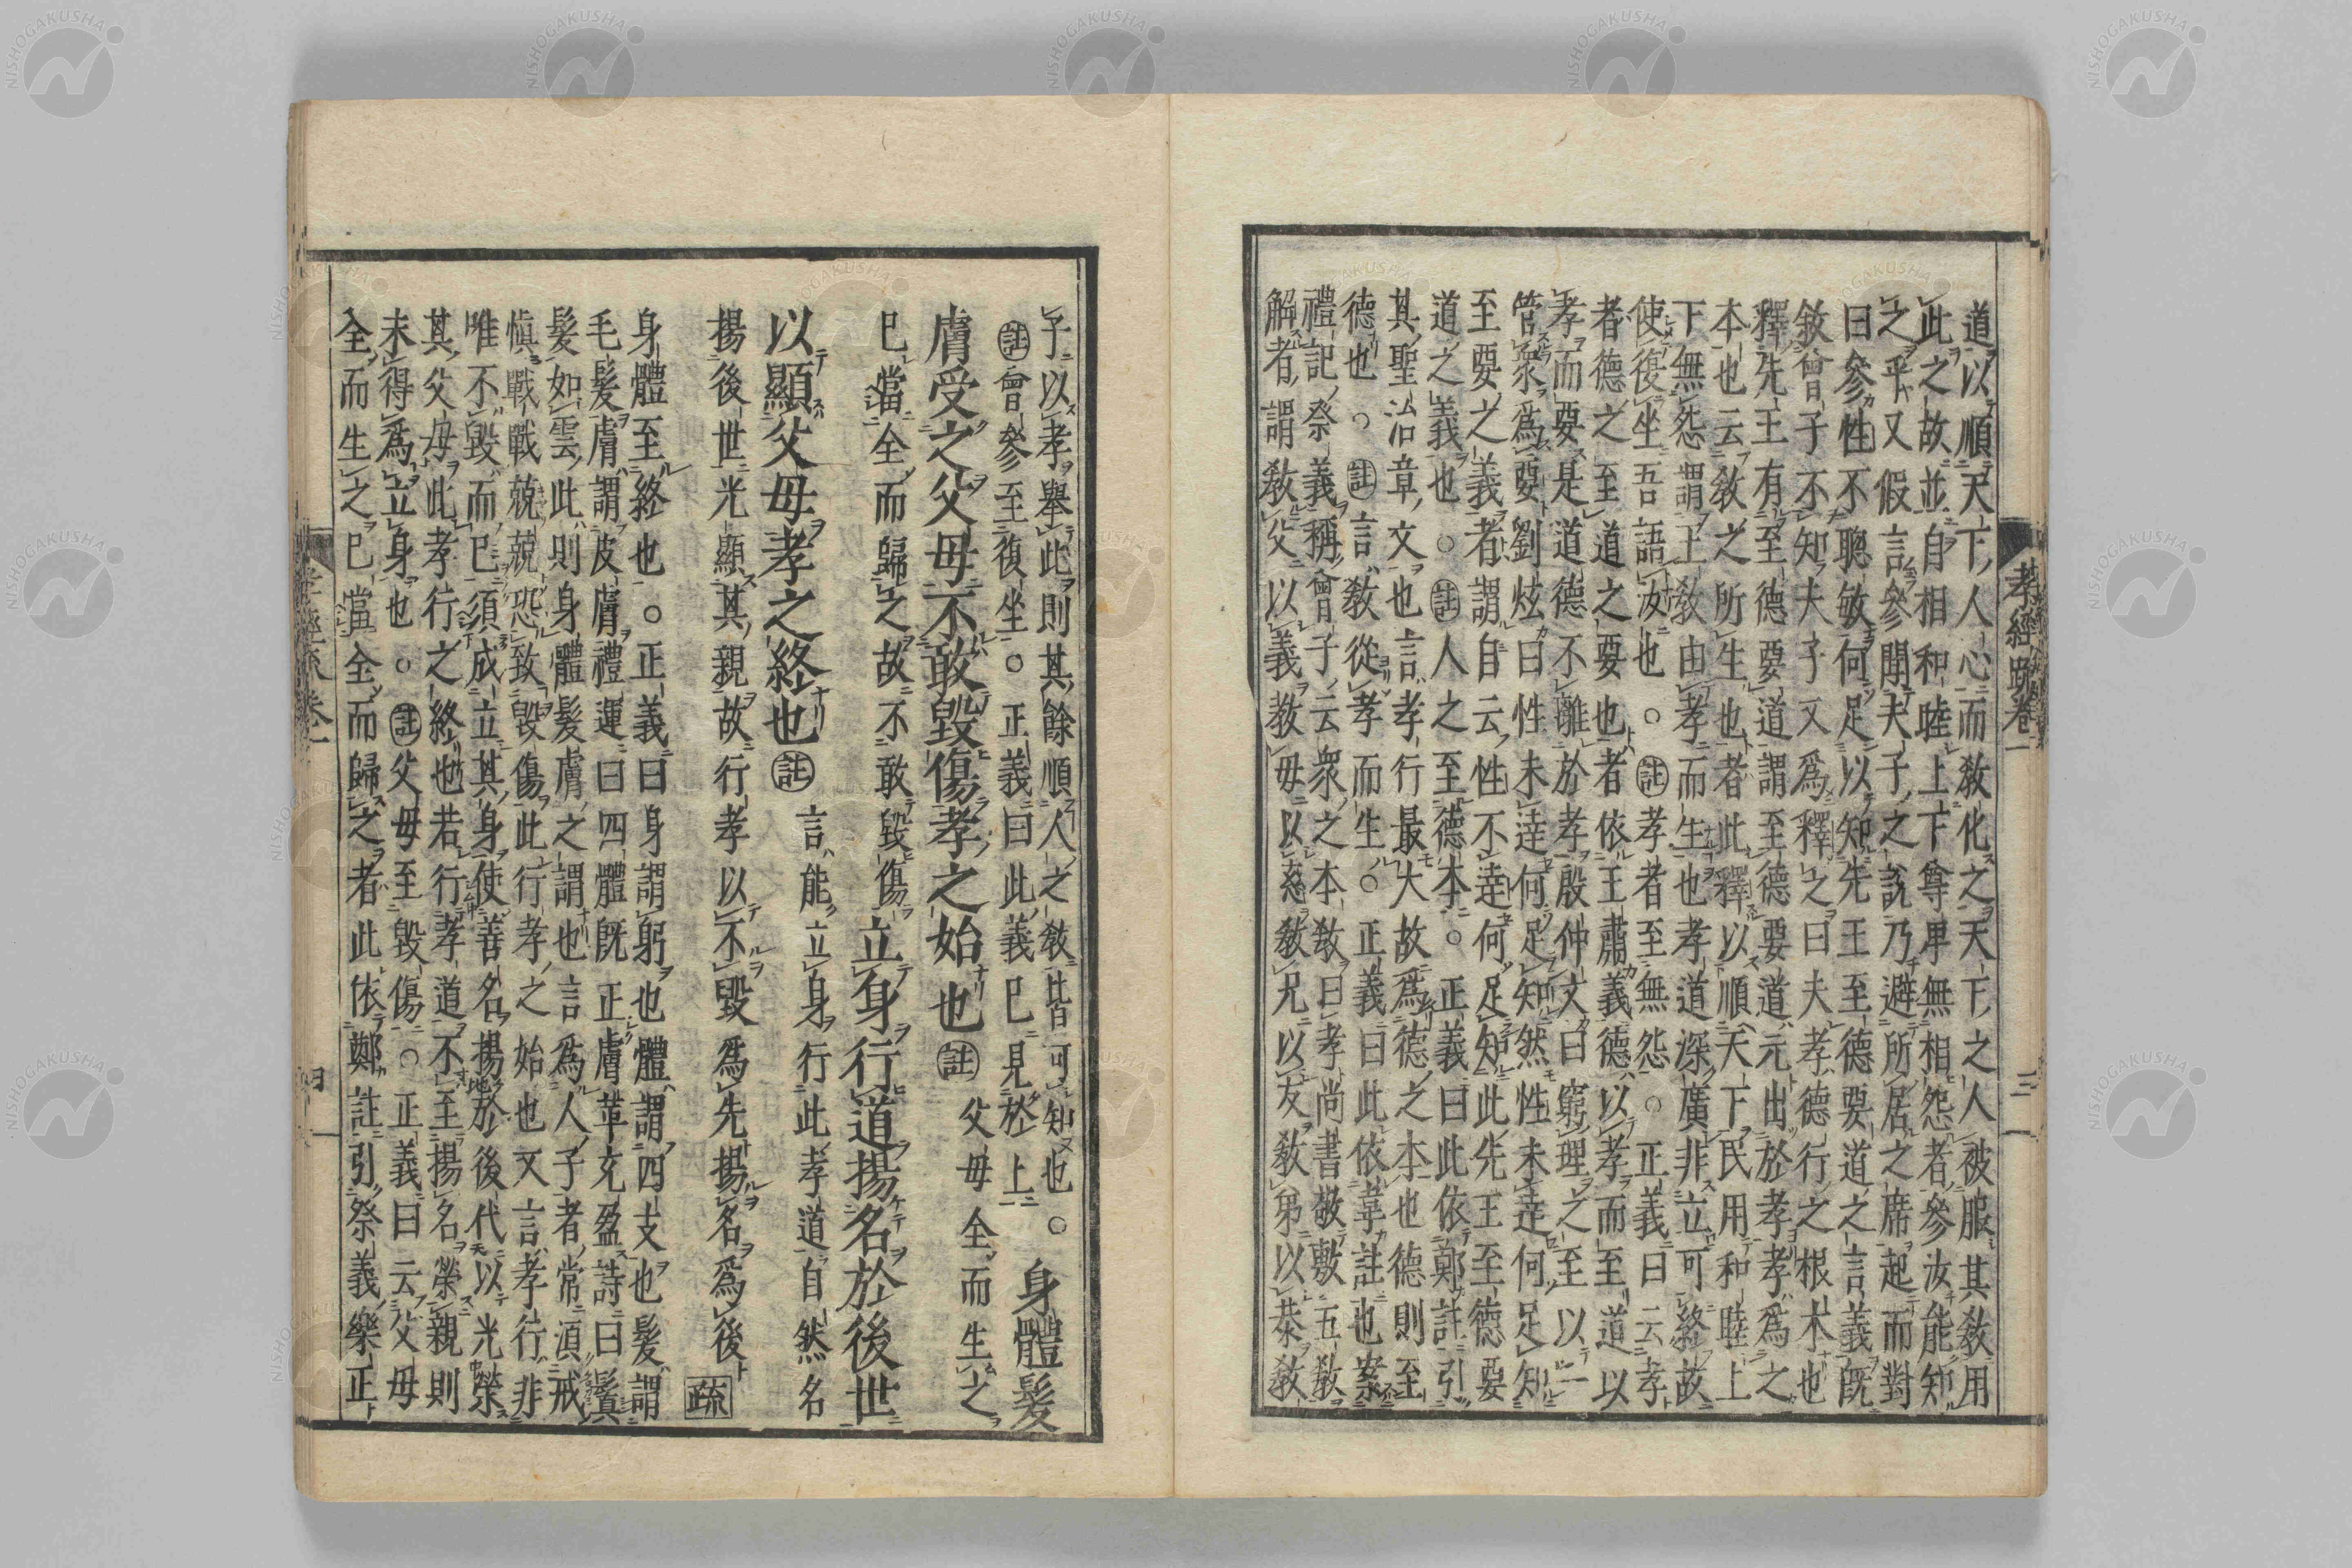 道以順天下人心而教化之天下之人被服其教用
此之故並自相和睦上下尊卑無相怨者參汝能知
之乎又假言參聞夫子之說乃避所居之席起而對
曰參性不聰敏何足以知先王至德要道之言義既
敘曾子不知夫子又爲釋之曰夫孝德行之根本也
釋先王有至德要道謂至德要道元出於孝孝爲之
本也云教之所生也者此釋以順天下民用和睦上
下無怨謂王教由孝而生也孝道深廣非立可終故
使復坐吾語汝也○註孝者至無怨○正義曰云孝
者德之至道之要也者依王肅義德以孝而至道以
孝而要是道德不離於孝殷仲文曰窮理之至以一
管衆爲要劉炫曰性未達何足知然性未達何足知
至要之義者謂自云性不達何足知此先王至德要
道之義也○註人之至德本○正義曰此依鄭註引
其聖治章文也言孝行最大故爲德之本也德則至
德也○註言教從孝而生○正義曰此依韋註也案
禮記祭義稱曾子云衆之本教曰孝尚書敬敷五教
解者謂教父以義教母以慈教兄以友教弟以恭教
孝經疏卷一
三
子以孝舉此則其餘順人之教皆可知也○身體髮
註曾參至復坐○正義曰此義已見於上
膚受之父母不敢毀傷孝之始也註父母全而生之
已當全而歸之故不敢毀傷立身行道揚名於後世
以顯父母孝之終也註言能立身行此孝道自然名
揚後世光顯其親故行孝以不毀爲先揚名爲後疏
身體至終也○正義曰身謂躬也體謂四支也髮謂
毛髮膚謂皮膚禮運曰四體既正膚革充盈詩曰鬒
髮如雲此則身體髮膚之謂也言爲人子者常須戒
慎戰戰兢兢恐致毀傷此行孝之始也又言孝行非
唯不毀而已須成立其身使善名揚於後代以光榮
其父母此孝行之終也若行孝道不至揚名榮親則
未得爲立身也○註父母至毀傷○正義曰云父母
全而生之已當全而歸之者此依鄭註引祭義樂正